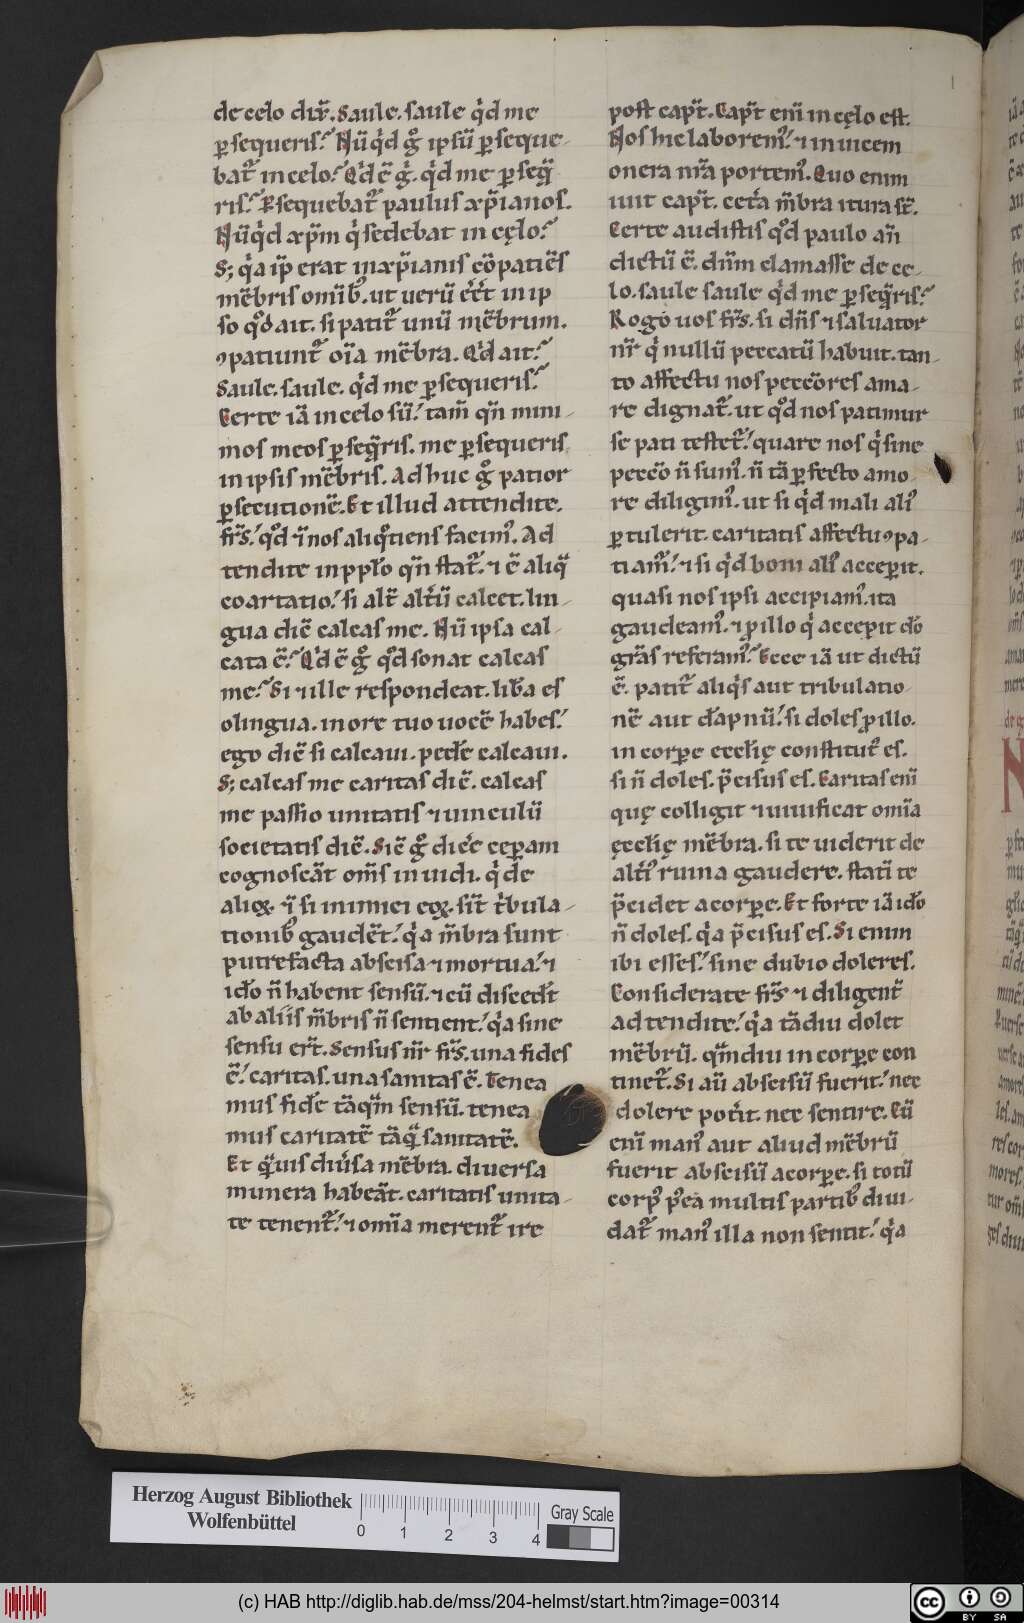 de celo dix̄. Saule. saule q̇d me
ꝑsequeris? Nūq̇d g̊ ipsū ꝑseque-
bat᷑ in celo? Q̇d ē g̊. q̇d me ꝑseq̄
ris? Ꝑsequebat᷑ paulus xp̄ianos.
Nūq̇d xp̄m q̇ sedebat in cęlo?
S; q̇a ip̄ erat in xp̄ianis cōpatiēs
mēbris omīb᷒. ut uerū eēt in ip
so qd̊ ait. si patit᷑ unū mēbrum.
ꝯpatiunt᷑ oīa mēbra. Q̇d ait?
Saule. saule. q̇d me ꝑsequeris?
Certe iā in celo sū. tam̄ qn̄ mini-
mos meos ꝑseq̄ris. me ꝑsequeris
in ipsis mēbris. Ad huc g̊ patior
ꝑsecutionē. Et illud attendite.
fr̄s. qd̊ ī nos aliq̊tiens facim᷒. Ad
tendite in pplo qn̄ stat᷑. ⁊ ē aliq̄
coartatio. si alt̄ altū calcet. lin-
gua diē calcas me. Nū ipsa cal-
cata ē? Q̇d ē g̊ qd̊ sonat calcas
me? Si ille respondeat. lib̄a es
o lingua. in ore tuo uocē habes.
ego diē si calcaui. pedē calcaui.
S; calcas me caritas diē. calcas
me passio unitatis ⁊ uinculū
societatis diē. Siē g̊ dic̄e cepam
cognoscāt om̄s inuidi. q̇ de
alioꝝ. ī si inimici eoꝝ sīt ṫbula-
tionib᷒ gaudēt. q̇a m̄bra sunt
putrefacta abscisa ⁊ mortua. ⁊
ido n̄ habent sensū. ⁊ cū disced̄t
ab aliis m̄bris n̄ sentient. q̇a sine
sensu er̄t. Sensus nr̄ fr̄s. una fides
ē. caritas. una sanitas ē. Tenea
mus fidē tāqm̄ sensū. tenea
mus caritatē tāq̄ sanitatē.
Et q̄uis diūsa mēbra. diuersa
munera habeāt. caritatis unita-
te tenent᷑. ⁊ omīa merent᷑ ire
post cap̄t. Cap̄t enī in cęlo est.
Nos hic laborem᷒. ⁊ inuicem
onera nr̄a portem᷒. Quo enim
iuit cap̄t. cet̄a m̄bra itura st̄.
Certe audistis qd̊ paulo an̄
dictū ē. dn̄m clamasse de ce-
lo. saule saule q̇d me ꝑseq̄ris?
Rogo uos fr̄s. si dn̄s ⁊ saluator
nr̄ q̇ nullū peccatū habuit. tan-
to affectu nos peccōres ama-
re dignat᷑. ut qd̊ nos patimur
se pati testet᷑. quare nos q̇ sine
peccō n̄ sum᷒. n̄ tā ꝑfecto amo-
re diligim᷒. ut si q̇d mali ali᷒
ꝑtulerit. caritatis affectu ꝯpa-
tiam᷒. ⁊ si q̇d boni ali᷒ acceperit.
quasi nos ipsi accipiam᷒. ita
gaudeam᷒. ⁊ ꝓ illo q̇ acceperit dō
gr̄as referam᷒. Ecce iā ut dictū
ē. patit᷑ aliq̇s aut tribulatio-
nē aut dāpnū. si doles ꝓ illo.
in corpe eccłię constitut᷒ es.
si n̄ doles. p̄cisus es. Caritas enī
quę colligit ⁊ uiuificat omīa
ęccłię mēbra. si te uiderit de
alt̄i᷒ ruina gaudere. statī te
p̄cidet a corpe. Et forte iā ido
n̄ doles. q̇a p̄cisus es. Si enim
ibi esses. sine dubio doleres.
Considerate fr̄s ⁊ diligent̄
adtendite. q̇a tādiu dolet
mēbrū. qm̄diu in corpe con
tinet᷑. Si aū abscisū fuerit. nec
dolere poṫit. nec sentire. Cū
enī man᷒ aut aliud mēbrū
fuerit abscisū a corpe. si totū
corp᷒ p̄ea multis partib᷒ diui-
dat᷑ man᷒ illa non sentit. q̇a
Herzog August Bibliothek
Wolfenbüttel
0 1 2 3 4
Gray Scale
(c) HAB http://diglib.hab.de/mss/204-helmst/start.htm?image=00314
cc BY SA